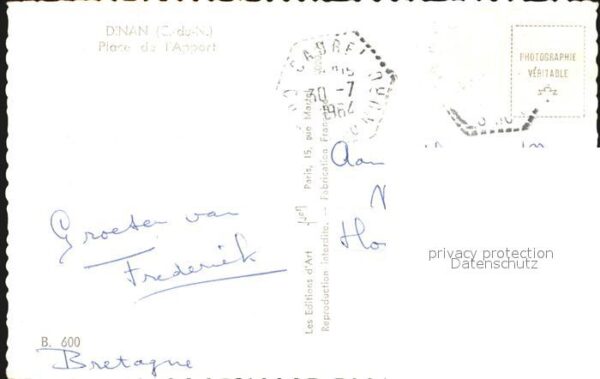 DINAN (C.-du-N.)
Place de l'Apport
PHOTOGRAPHIE
VÉRITABLE
30 -7
1964
Groeten van
Frederiek
B. 600
Bretagne
Les Editions d'Art
Paris, 15, rue Martel
Reproduction interdite. — Fabrication Française
Aan
Ho
privacy protection
Datenschutz